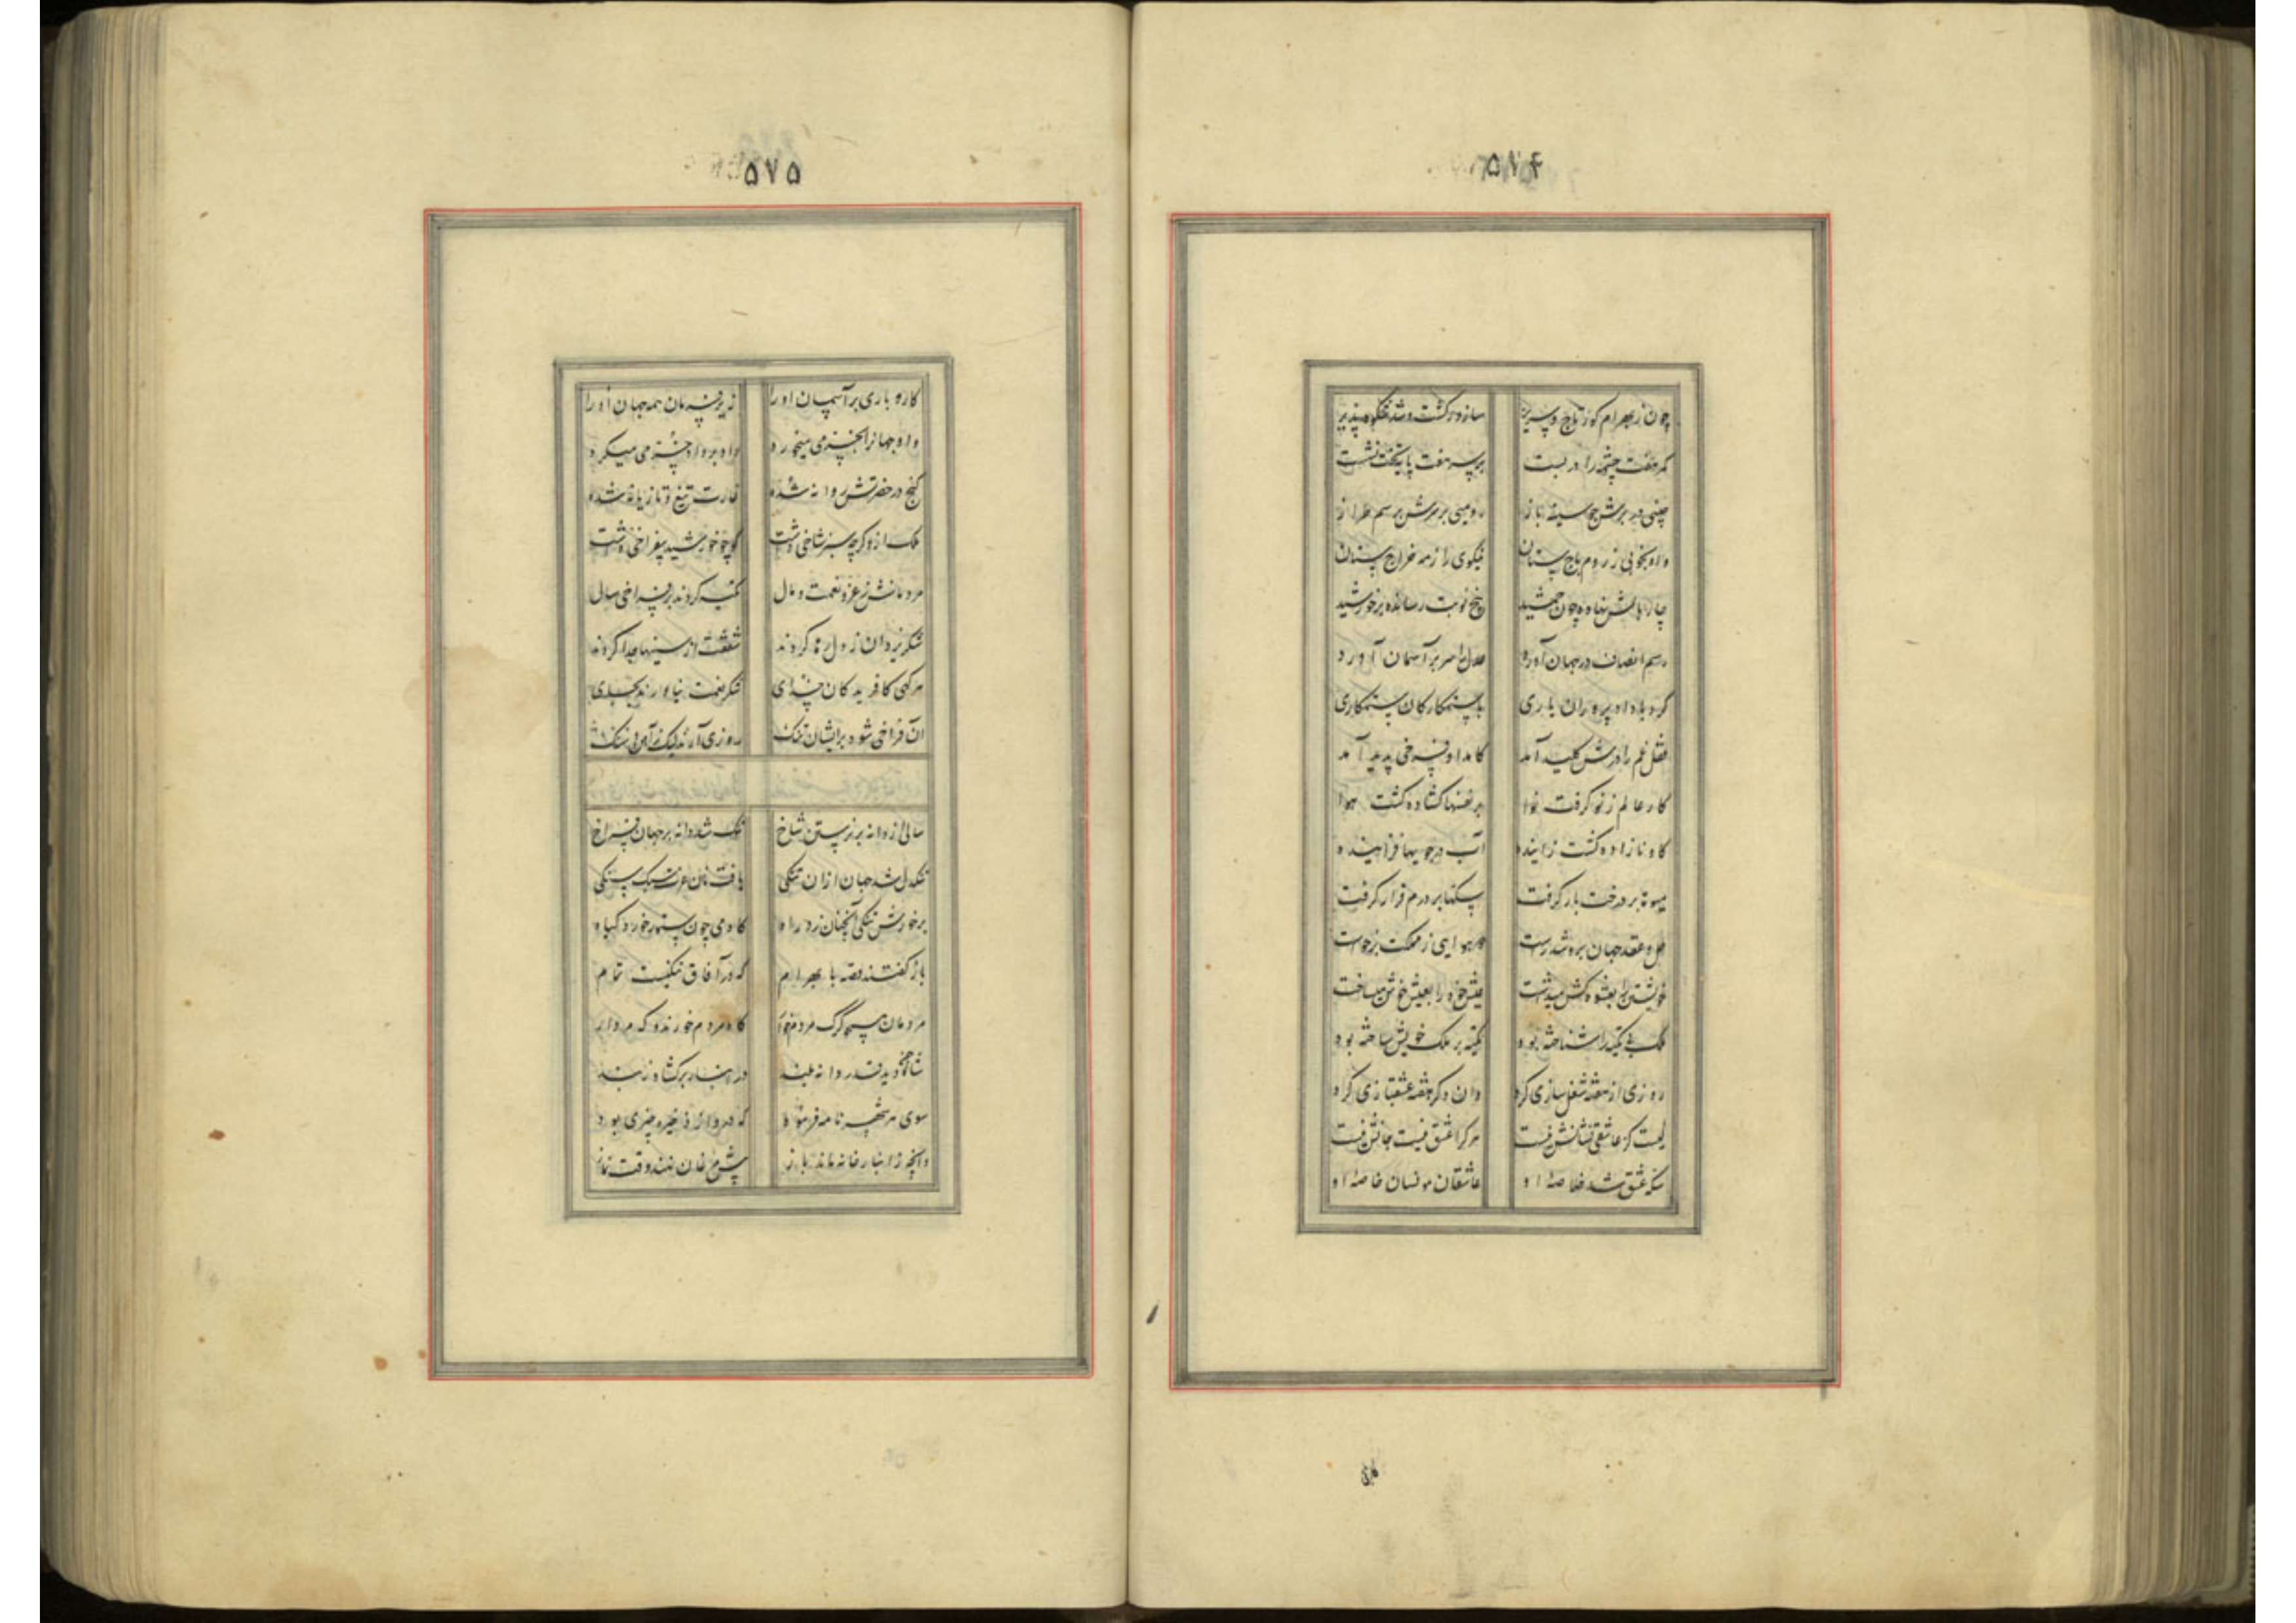 ۵۷۴
چون ز بهرام کور تاج و سریر سازور کشت و شد شکوه پذیر
کمر هفت چشمه را در بست بر سر هفت پایه تخت نشست
چینی در برش چو سینهٔ باز رومیی بر سرش برسم طراز
واو بخوبی ز روم باج ستان نیکوی را ز مه خراج ستان
چار بالش نهاده چون جمشید پنج نوبت رسانده بر خورشید
رسم انصاف در جهان آورد عدل را سر بر آسمان آورد
کرد با داد پروران یاری با ستمکارکان ستمکاری
قفل غم را درش کلید آمد کامد او فرخی پدید آمد
کار عالم ز نو کرفت نوا بر نفسها کشاده کشت هوا
کاو نازاده کشت زاینده آب در جویها فزاینده
میوه‌تا بر درخت بار کرفت سکها بر درم قرار کرفت
حل و عقد جهان برو شد راست دو هوایی ز مملکت برخواست
خویشتن را بعشوه کش میداشت عیش خود را بعیش خوش میساخت
ملک بی تکیه را شناخته بود تکیه بر ملک خویش ساخته بود
روزی از هفته شغل سازی کرد وان دکر هفته عشقبازی کرد
کیست کز عاشقی نشانش نیست هر کرا عشق نیست جانش نیست
سکهٔ عشق شد خلاصهٔ او عاشقان مونسان خاصهٔ او
کاره
۵۷۵
کاره باری بر آسمان اورا زیر فرمان همه جهان اورا
واو جهانرا بخرمی میخورد داد بر داد خرمی میکرد
کنج در حضرتش روانه شده غارت تیغ و تازیانه شده
ملک ازو کرچه سبز شاخی داشت او چو خورشید پی فراخی داشت
مردمانش ز عز و نعمت و مال تکیه کردند بر فراخی سال
شکر یزدان ز دل رها کردند شفقت از سینها جدا کردند
هر کهی کافریدکان خدای شکر نعمت نیاورند بجای
آن فراخی شود بر ایشان تنک روزی آرند لیک از آهن و سنک
سالی از دانه بر نرستن شاخ تنک شد دانه بر جهان فراخ
تنکدل شد جهان ازان تنکی یافت نان عزت سبک سنکی
بر خورش تنکی آنچنان زد راه کادمی چون ستور خورد کیاه
باز کفتند قصه با بهرام که در آفاق تنکیست تمام
مردمان همچو کرک مردمخوار کاه مردم خورند و که مردار
شاه چون دید قدر دانه بلند در انبار بر کشاد ز بند
سوی هر شهر نامه فرموده که درو از ذخیره چیزی بود
وانچه ز انبارخانه ماند باز پیش مرغان نهند وقت نماز